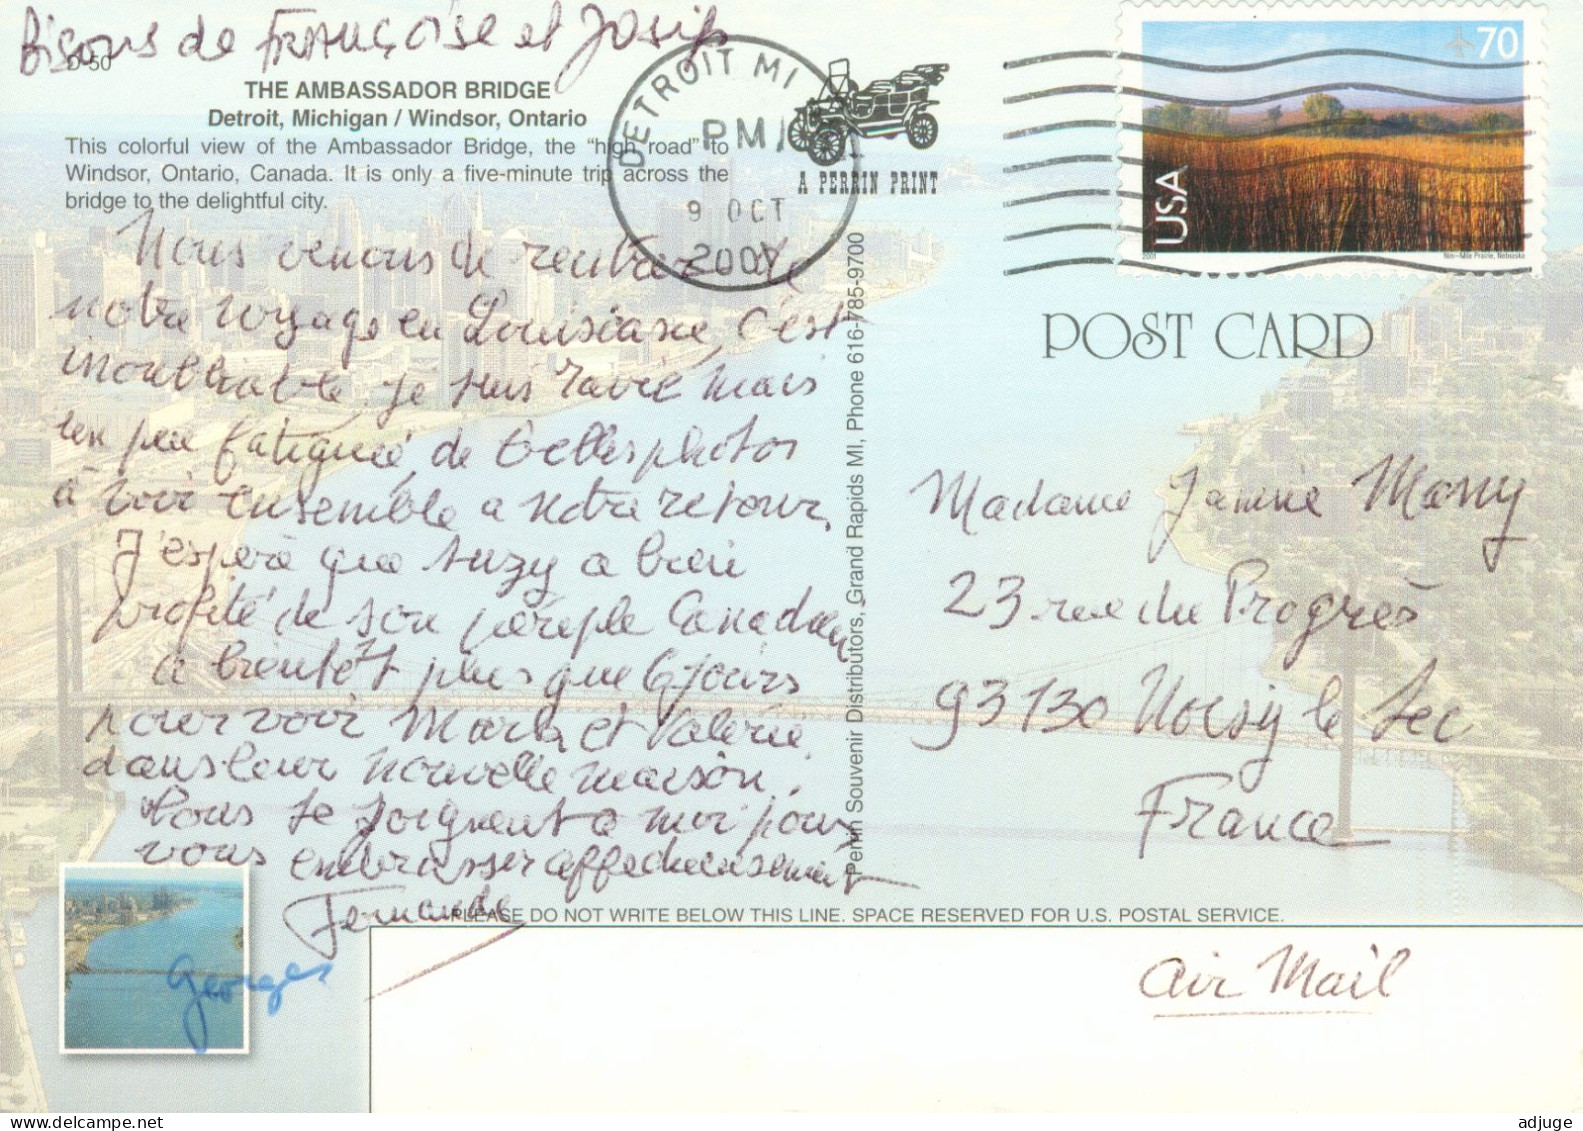 Bisous de FRANÇOISE et Josip
D-50
THE AMBASSADOR BRIDGE
Detroit, Michigan / Windsor, Ontario
This colorful view of the Ambassador Bridge, the "high road" to
Windsor, Ontario, Canada. It is only a five-minute trip across the
bridge to the delightful city.
DETROIT MI
PM
9 OCT
A PERRIN PRINT
70
USA
2001
Nine-Mile Prairie, Nebraska
Nous venons de rentrer de
notre voyage en Louisiane c'est
inoubliable je suis ravie mais
un peu fatiguée, de belles photos
à voir ensemble a notre retour,
J'espère que Suzy a bien
profité de son périple Canadien
a bientôt plus que 6 jours
pour voir Mark et Valérie
dans leur nouvelle maison.
Tous se joignent a moi pour
vous embrasser affectueusement
Fernande
Georges
Perrin Souvenir Distributors, Grand Rapids MI, Phone 616-785-9700
POST CARD
Madame Janine
23 rue du Progrès
93130 Noisy le Sec
France
PLEASE DO NOT WRITE BELOW THIS LINE. SPACE RESERVED FOR U.S. POSTAL SERVICE.
Air Mail
adjuge